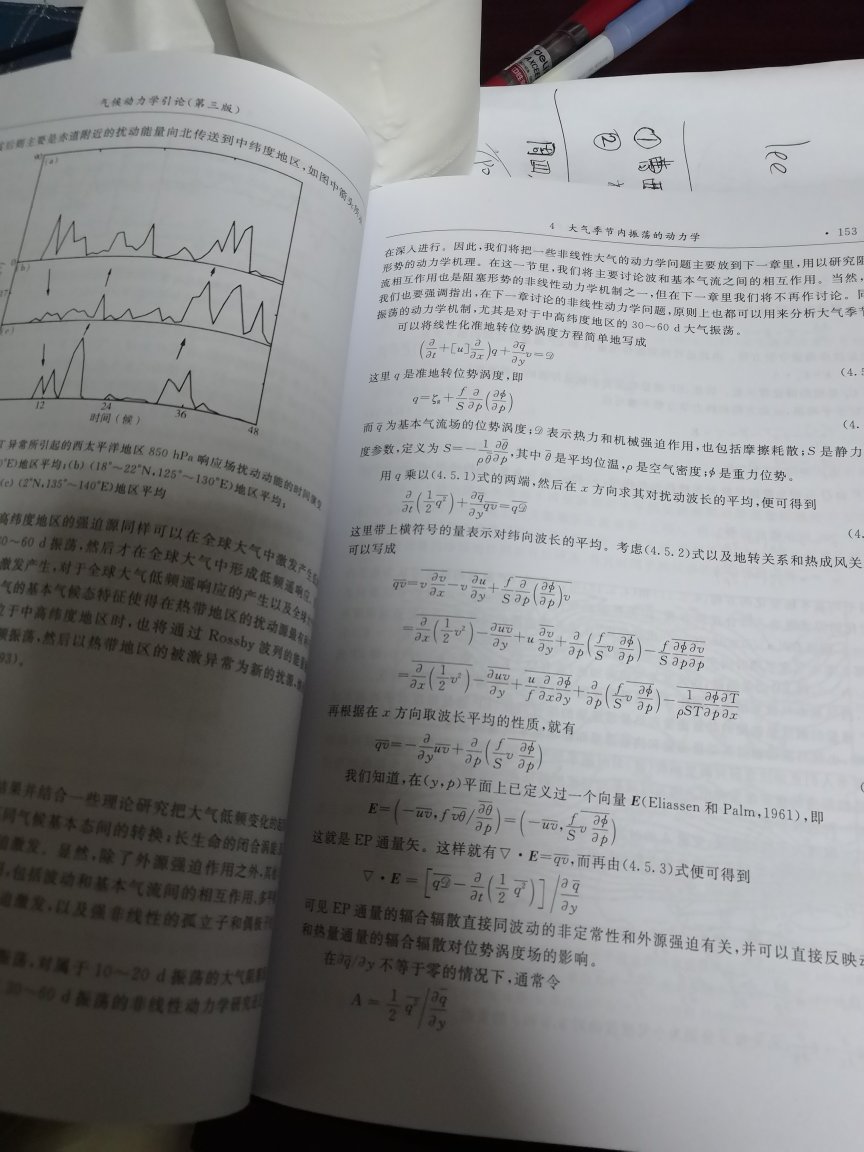 气候动力学引论(第三版)
后则主要是赤道附近的扰动能量向北传送到中纬度地区,如图中箭头所
(a)
(b)
(c)
12 24 36 48
时间(候)
异常所引起的西太平洋地区 850 hPa 响应场扰动动能的时间演变
°E)地区平均;(b) (18°~22°N,125°~130°E)地区平均;
(c) (2°N,135°~140°E)地区平均
高纬度地区的强迫源同样可以在全球大气中激发产生
0~60 d 振荡,然后才在全球大气中形成低频遥响应。
激发产生,对于全球大气低频遥响应的产生以及全球
气的基本气候态特征使得在热带地区的扰动源最有
位于中高纬度地区时,也将通过 Rossby 波列的能量
频振荡,然后以热带地区的被激异常为新的扰源,
93)。
结果并结合一些理论研究把大气低频变化的
同气候基本态间的转换;长生命的闭合涡旋
迫激发。显然,除了外源强迫作用之外,其
,包括波动和基本气流间的相互作用、多平
迫激发,以及强非线性的孤立子和偶极子
振荡,对属于 10~20 d 振荡的大气阻塞
30~60 d 振荡的非线性动力学研究
4 大气季节内振荡的动力学
· 153
在深入进行。因此,我们将把一些非线性大气的动力学问题主要放到下一章里,用以研究阻
形势的动力学机理。在这一节里,我们将主要讨论波和基本气流之间的相互作用。当然,
流相互作用也是阻塞形势的非线性动力学机制之一,但在下一章里我们将不再作讨论。同
我们也要强调指出,在下一章讨论的非线性动力学问题,原则上也都可以用来分析大气季节
振荡的动力学机制,尤其是对于中高纬度地区的 30~60 d 大气振荡。
可以将线性化准地转位势涡度方程简单地写成
(∂/∂t + [u]∂/∂x)q + ∂q̄/∂y v = 𝒟
(4.5
这里 q 是准地转位势涡度,即
q = ζg + f/S ∂/∂p(∂φ/∂p)
(4.
而 q̄ 为基本气流场的位势涡度;𝒟 表示热力和机械强迫作用,也包括摩擦耗散;S 是静力
度参数,定义为 S = −1/(ρθ̄) ∂θ̄/∂p,其中 θ̄ 是平均位温,ρ 是空气密度;φ 是重力位势。
用 q 乘以(4.5.1)式的两端,然后在 x 方向求其对扰动波长的平均,便可得到
∂/∂t(1/2 q̅²̅) + ∂q̄/∂y q̅v̅ = q̅𝒟̅
(4.
这里带上横符号的量表示对纬向波长的平均。考虑(4.5.2)式以及地转关系和热成风关
可以写成
q̅v̅ = v ∂v/∂x − v ∂u/∂y + f/S ∂/∂p(∂φ/∂p)v
= ∂/∂x(1/2 v²) − ∂uv/∂y + u ∂v/∂y + ∂/∂p(f/S v ∂φ/∂p) − f/S ∂φ/∂p ∂v/∂p
= ∂/∂x(1/2 v²) − ∂uv/∂y + u/f ∂/∂x ∂φ/∂y + ∂/∂p(f/S v ∂φ/∂p) − 1/(ρST) ∂φ/∂p ∂T/∂x
再根据在 x 方向取波长平均的性质,就有
q̅v̅ = −∂/∂y u̅v̅ + ∂/∂p(f/S v ∂φ/∂p)
我们知道,在(y,p)平面上已定义过一个向量 E(Eliassen 和 Palm,1961),即
E = (−u̅v̅, f v̅θ̅/∂θ̄/∂p) = (−u̅v̅, f/S v ∂φ/∂p)
这就是 EP 通量矢。这样就有 ∇·E = q̅v̅,而再由(4.5.3)式便可得到
∇·E = [q̅𝒟̅ − ∂/∂t(1/2 q̅²̅)]/∂q̄/∂y
可见 EP 通量的辐合辐散直接同波动的非定常性和外源强迫有关,并可以直接反映
和热量通量的辐合辐散对位势涡度场的影响。
在∂q̄/∂y 不等于零的情况下,通常令
A = 1/2 q̅²̅/∂q̄/∂y
deli
①
②